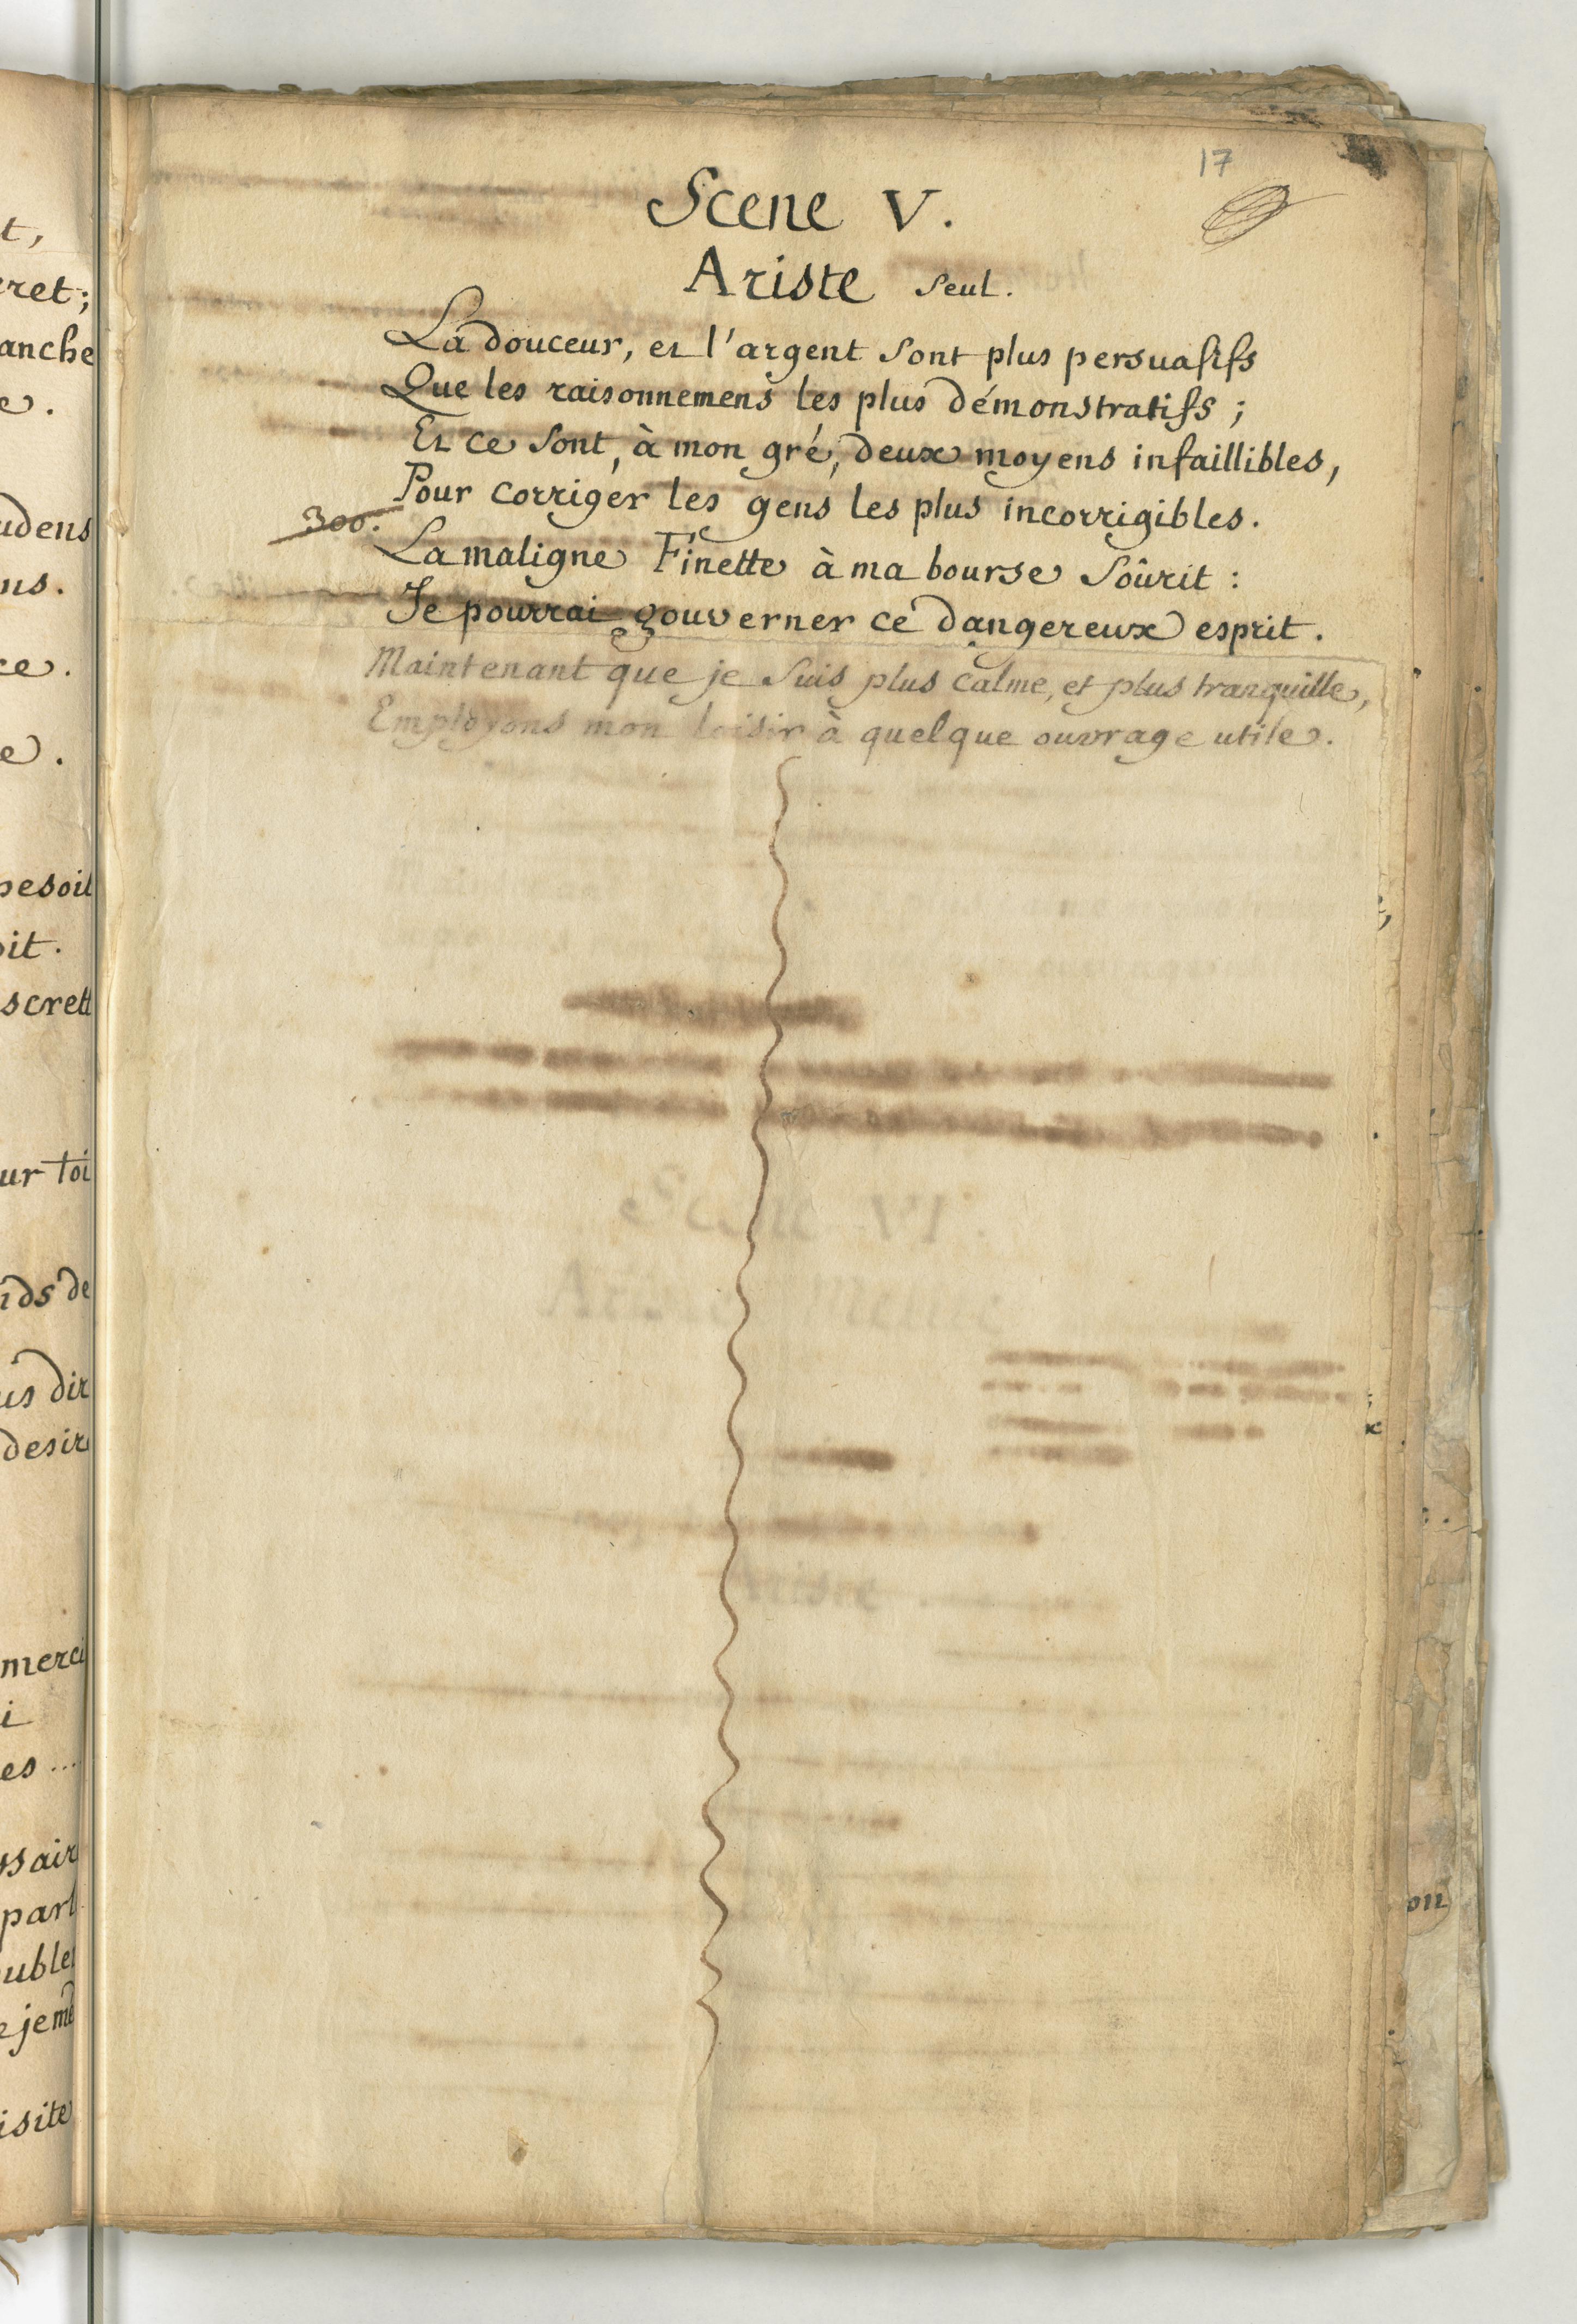 17
Scene V.
Ariste seul.
La douceur, et l'argent sont plus persuasifs
Que les raisonnemens les plus démonstratifs ;
Et ce sont, à mon gré, deux moyens infaillibles,
Pour corriger les gens les plus incorrigibles.
300.
La maligne Finette à ma bourse Soûrit :
Je pourrai gouverner ce dangereux esprit.
Maintenant que je suis plus calme, et plus tranquille,
Employons mon loisir à quelque ouvrage utile.
Scene VI.
Ariste
t,
ret;
anche
e.
udens
ns.
ce.
e.
besoit
oit.
scrett
ur toi
ids de
us dir
desir
merci
i
es ...
ssair
part
ubles
e je me
isite
on